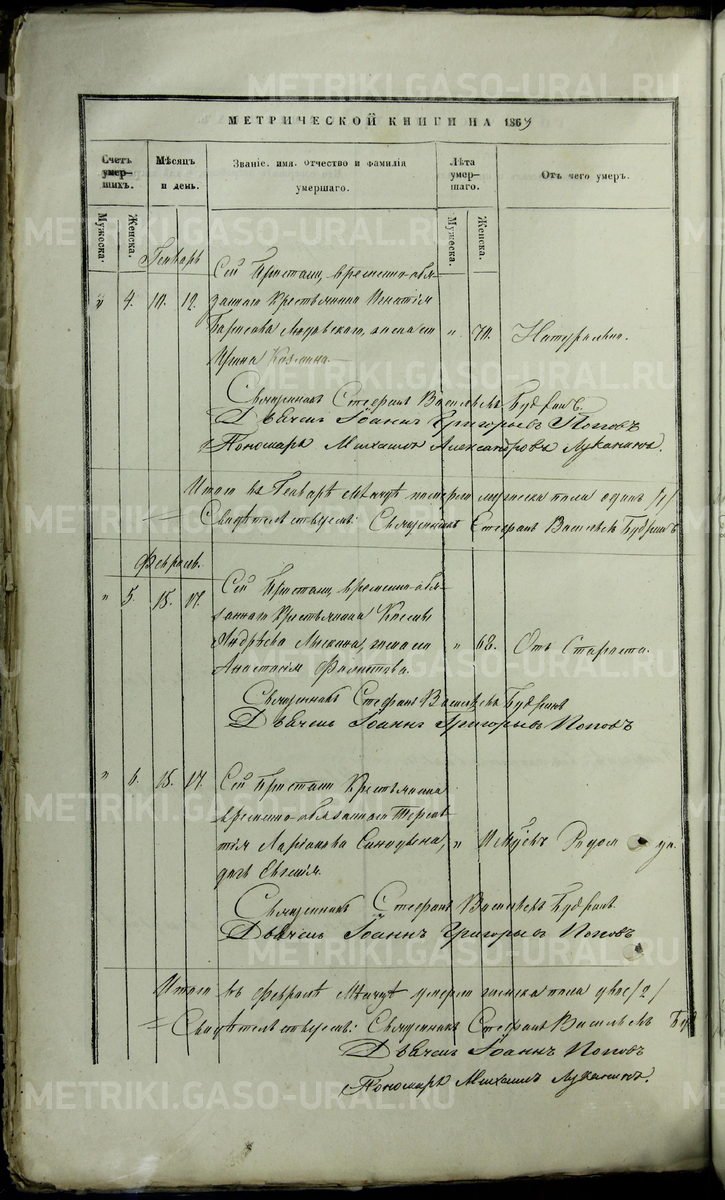 МЕТРИЧЕСКОЙ КНИГИ НА 1863
Счетъ умер-шихъ.
Мѣсяцъ и день.
Званіе, имя, отчество и фамилія умершаго.
Лѣта умер-шаго.
Отъ чего умеръ.
Мужеска.
Женска.
Мужеска.
Женска.
Генварь
Сей Пристани, временно-обя-
" 4. 10. 12. заннаго Крестьянина Игнатія
Борисова жена " 70. Натурально.
Ирина
Священникъ Стефанъ Васильевъ Будринъ.
Дьячекъ Іоаннъ Григорьевъ Поповъ
Пономарь Михаилъ Александровъ Луканинъ.
Итого въ Генварѣ мѣсяцѣ померло женска пола одна /1/
Свидѣтельствуемъ: Священникъ Стефанъ Васильевъ Будринъ
Февраль.
Сей Пристани, временно-обя-
" 5. 15. 17. заннаго крестьянина Космы
Андрѣева жена " 68. Отъ Старости.
Анастасія
Священникъ Стефанъ Васильевъ Будринъ
Дьячекъ Іоаннъ Григорьевъ Поповъ
" 6. 15. 17. Сей Пристани Крестьянина
временно-обязаннаго
Ларіонова "
дочь Евгенія.
Священникъ Стефанъ Васильевъ Будринъ.
Дьячекъ Іоаннъ Григорьевъ Поповъ
Итого въ Февралѣ мѣсяцѣ умерло женска пола двѣ /2/
Свидѣтельствуемъ: Священникъ Стефанъ Васильевъ Буд
Дьячекъ Іоаннъ Поповъ
Пономарь Михаилъ Луканинъ.
METRIKI.GASO-URAL.RU